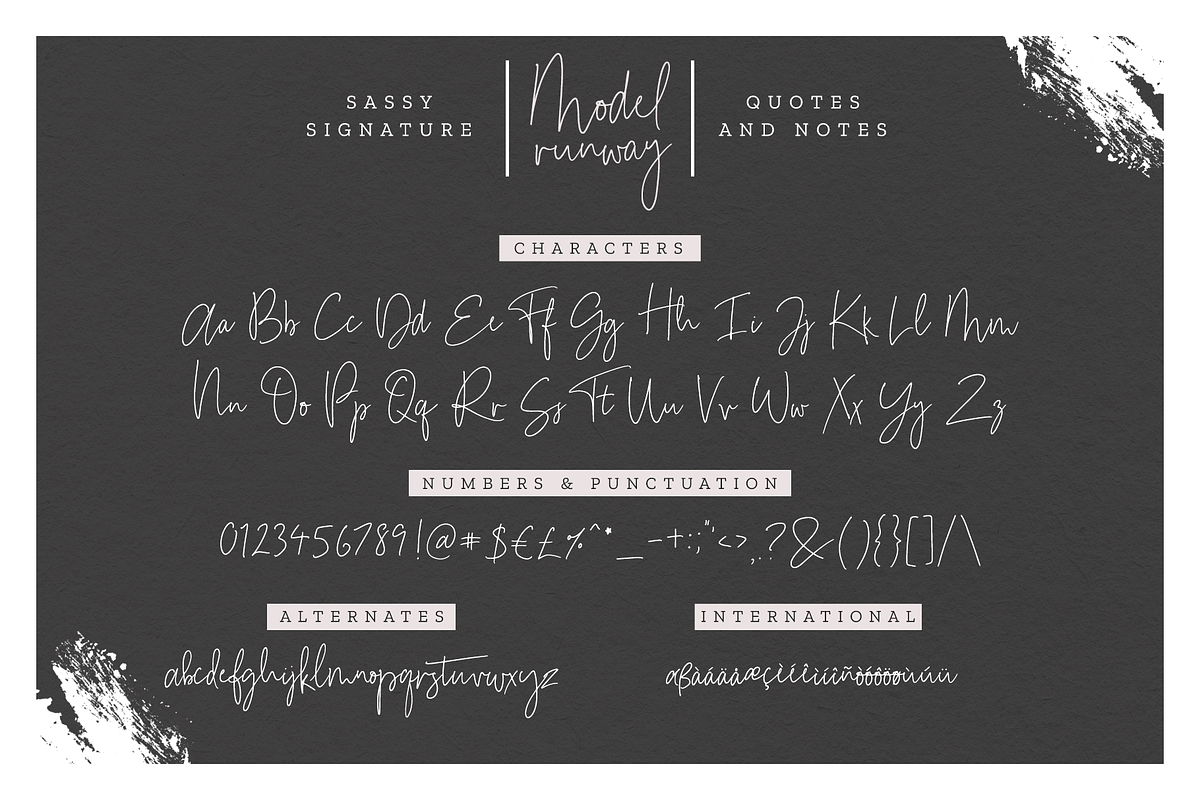 SASSY
SIGNATURE
Model
runway
QUOTES
AND NOTES
CHARACTERS
Aa Bb Cc Dd Ee Ff Gg Hh Ii Jj Kk Ll Mm
Nn Oo Pp Qq Rr Ss Tt Uu Vv Ww Xx Yy Zz
NUMBERS & PUNCTUATION
0123456789!@#$€£%^*_-+:;"'<>,.?&(){}[]/\
ALTERNATES
abcdefghijklmnopqrstuvwxyz
INTERNATIONAL